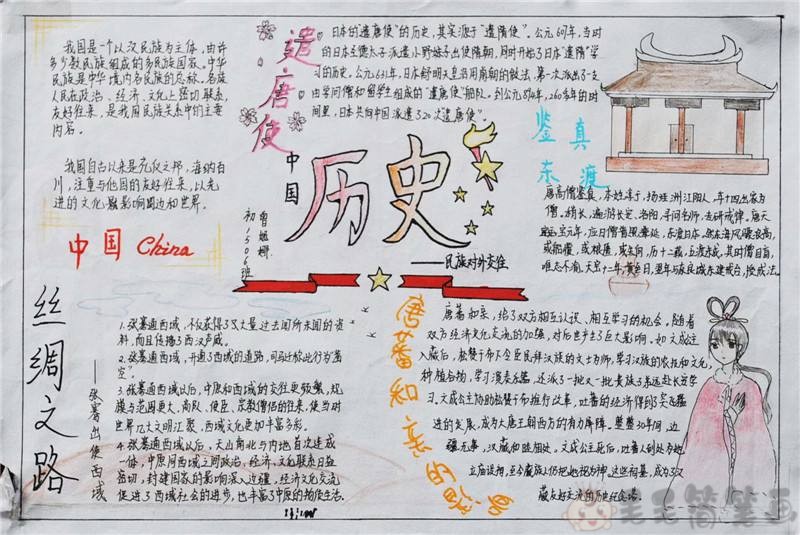 我国是一个以汉民族为主体，由许
多少数民族组成的多民族国家。中华
民族是中华境内各民族的总称。各族
人民在政治、经济、文化上密切联系，
友好往来，是我国民族关系中的主要
内容。
我国自古以来是礼仪之邦，海纳百
川，注重与他国的友好往来，以先
进的文化影响周边和世界。
中国 China
遣唐使
日本的“遣唐使”的历史，其实源于“遣隋使”。公元607年，当时
的日本圣德太子派遣小野妹子出使隋朝，同时开始了日本“遣隋”学
习的历史。公元631年，日本舒明天皇沿用前朝的做法，第一次派出了支
由学问僧和留学生组成的“遣唐使”船队。到公元894年，260多年的时
间里，日本共向中国派遣了20次遣唐使。
中国
历史
——民族对外交往
初1506班
鉴真
东渡
唐高僧鉴真，本姓淳于，扬州江阳人，年十四出家为
僧。稍长，遍游长安、洛阳，寻问名师，专研戒律。唐天
宝元年，应日僧普照等延，东渡日本。然东海风骤浪高，
或船覆，或粮匮，历十二载，五渡未成。其时僧目盲，
丝绸之路
——张骞出使西域
1. 张骞通西域，不仅获得了大量过去闻所未闻的资
料，而且传播了西汉声威。
2. 张骞通西域，开通了西域的道路，司马迁称此行为“凿
空”。
3. 张骞通西域以后，中原和西域的交往更频繁，规
模与范围更大，商队、使臣、宗教僧侣的往来，使当时
世界几大文明汇聚，西域文化更加丰富多彩。
4. 张骞通西域以后，天山南北与内地首次连成
一体，中原同西域之间政治、经济、文化联系日益
密切，封建国家的影响深入边疆，经济文化交流
促进了西域社会的进步，也丰富了中原的物质生活。
唐蕃和亲的
唐蕃和亲，给了双方相互认识、相互学习的机会。随着
双方经济文化交流的加强，对后世产生了巨大影响。如文成公主
入藏后，松赞干布不仅臣民拜汉族的文士为师，学习汉族的农技和文化，
种植谷物，学习演奏乐器，还派了一批又一批贵族子弟远赴长安学
习。文成公主协助松赞干布推行改革，吐蕃的经济得到了突飞猛
进的发展，成为大唐王朝西方的有力屏障。整整30年间，边
疆无事，汉藏和睦相处。文成公主死后，吐蕃人到处为她
立庙设祠，至今藏族人仍把她视为神，这些祠墓，成为了汉
藏友好交流的历史纪念塔。
毛毛简笔画